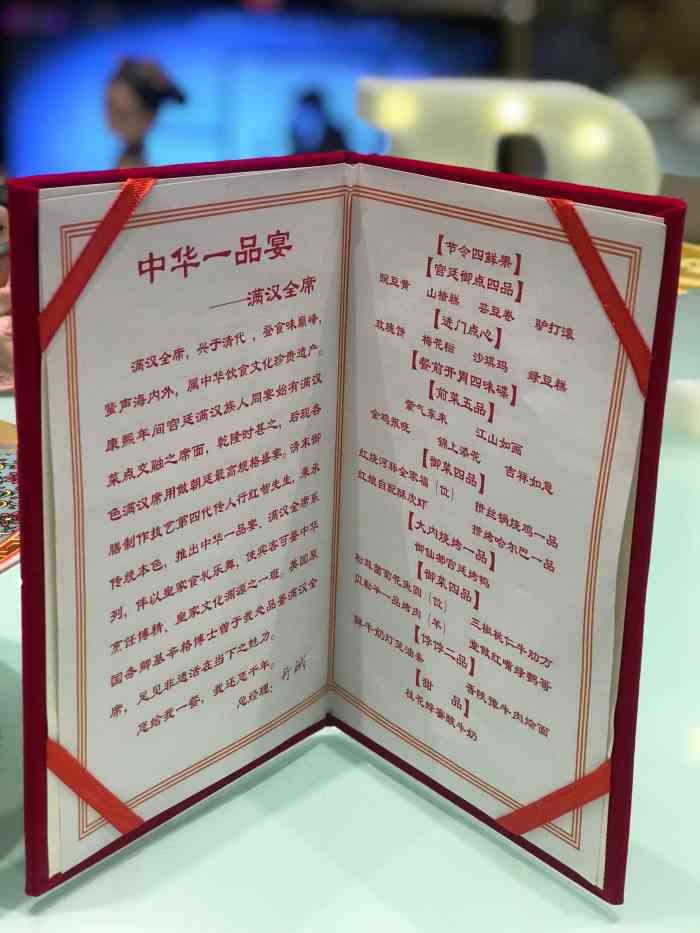 中华一品宴
——满汉全席
满汉全席，兴于清代，登食味巅峰，
蜚声海内外，属中华饮食文化珍贵遗产。
康熙年间宫廷满汉族人同宴始有满汉
菜点交融之席面，乾隆时甚之，后现各
色满汉席用做朝廷最高规格盛宴。清末御
膳制作技艺第四代传人行红智先生，秉承
传统本色，推出中华一品宴、满汉全席系
列，伴以皇家食礼乐舞，使宾客可鉴中华
烹饪博精、皇家文化渊源之一斑。美国原
国务卿基辛格博士曾于我处品鉴满汉全
席，足见非遗活在当下之魅力。
您给我一餐，我还您千年。
总经理：
【节令四鲜果】
【宫廷御点四品】
豌豆黄 山楂糕 芸豆卷 驴打滚
【进门点心】
玫瑰饼 梅花酥 沙琪玛 绿豆糕
【餐前开胃四味碟】
【前菜五品】
紫气东来 江山如画
金鸡报晓 锦上添花 吉祥如意
【御菜四品】
红烧河鲜全家福（位） 拼丝锅烧鸡一品
红娘自配酥皮虾 拼烤哈尔巴一品
【大内烧烤一品】
御仙都宫廷烤鸭
【御菜四品】
松茸菊花鱼圆（位） 三椒桃仁牛肋方
贝勒羊一品烤肉（羊） 堂做红嘴绿鹦哥
【饽饽二品】
鲜牛奶灯笼油条 香辣豫牛肉烩面
【甜 品】
桂花蜂蜜酸牛奶